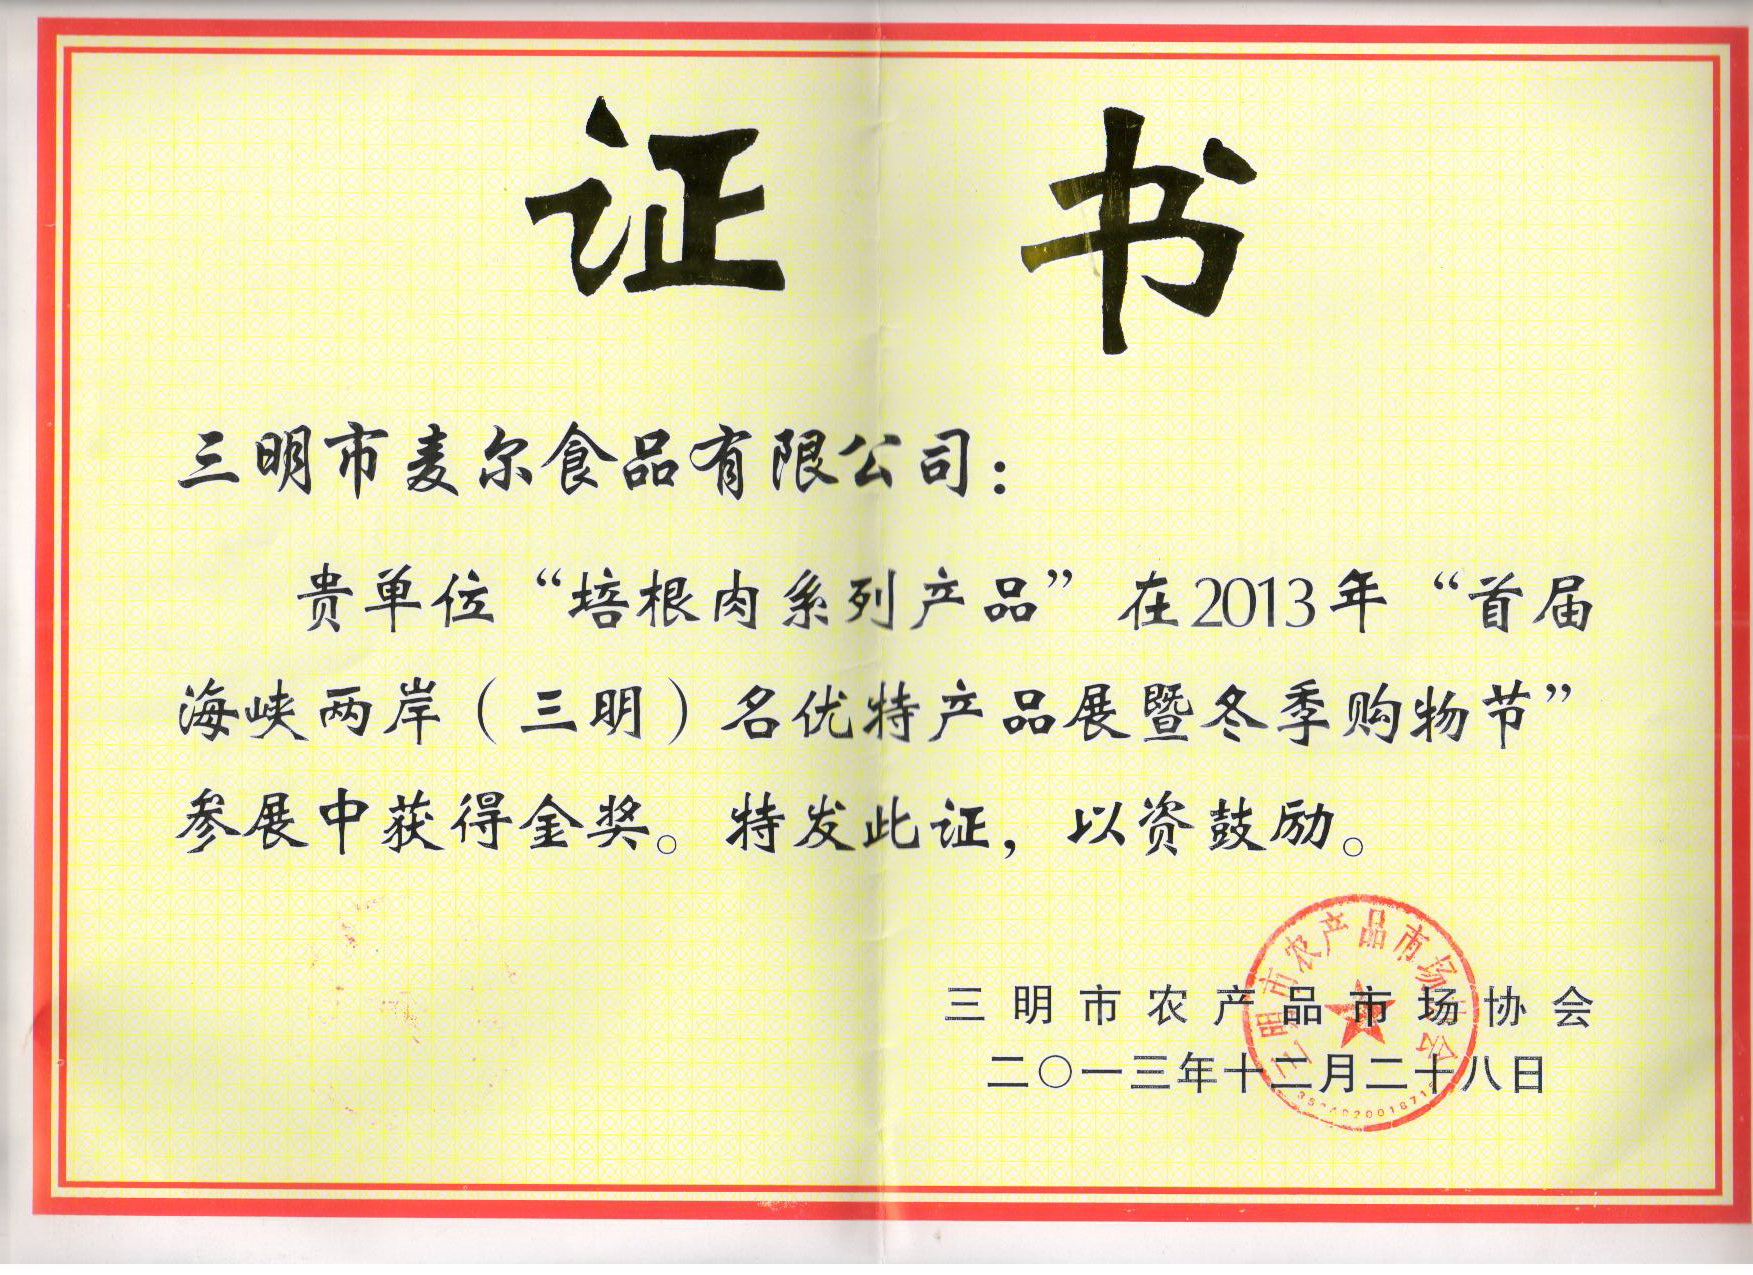 证书
三明市麦尔食品有限公司：
贵单位“培根肉系列产品”在2013年“首届
海峡两岸（三明）名优特产品展暨冬季购物节”
参展中获得金奖。特发此证，以资鼓励。
三明市农产品市场协会
三明市农产品市场协会
二〇一三年十二月二十八日